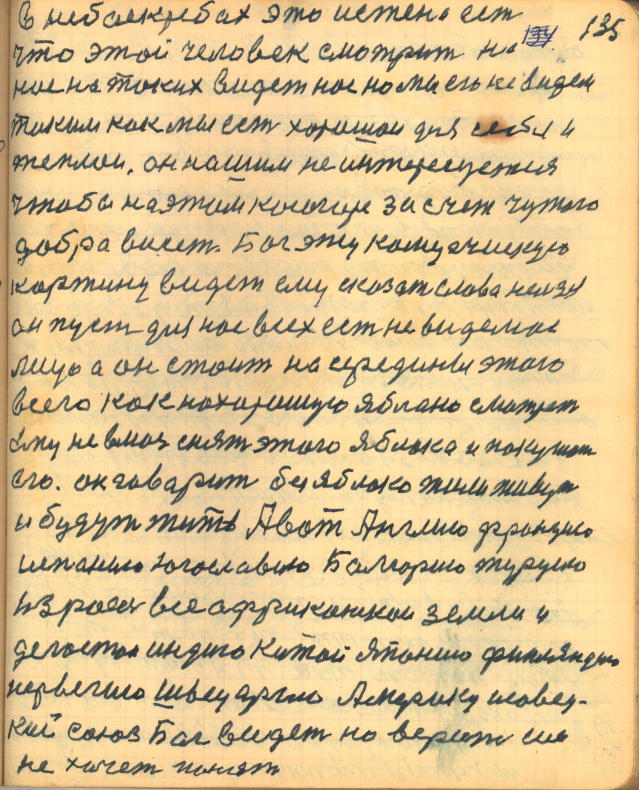 в небоскребах это истена ест
что этой человек смотрит на 134 135
нас на токих видет нас но мы его не видем
таким как мы ест хорошои для себя и
теплои. он нашим не интересуется
чтобы на этом косогоре за счет чутого
добра висет. Бог эту
картину видет ему сказат слова нелзя
он пуст для нас всех ест не видемае
лицо а он стоит на середины этого
всего как на хорошую яблано смотрит
ему не вмоч снят этого яблока и покушат
его. он гаварит без яблоко жили живут
и будут жить А вот Англию францию
испанию Югославию Балгорию турцию
Израел все африконской земли и
индию Китой Японию финляндию
нарвегию швецаргию Америку и совец-
кий союз Бог видет но верит им
не хочет понят